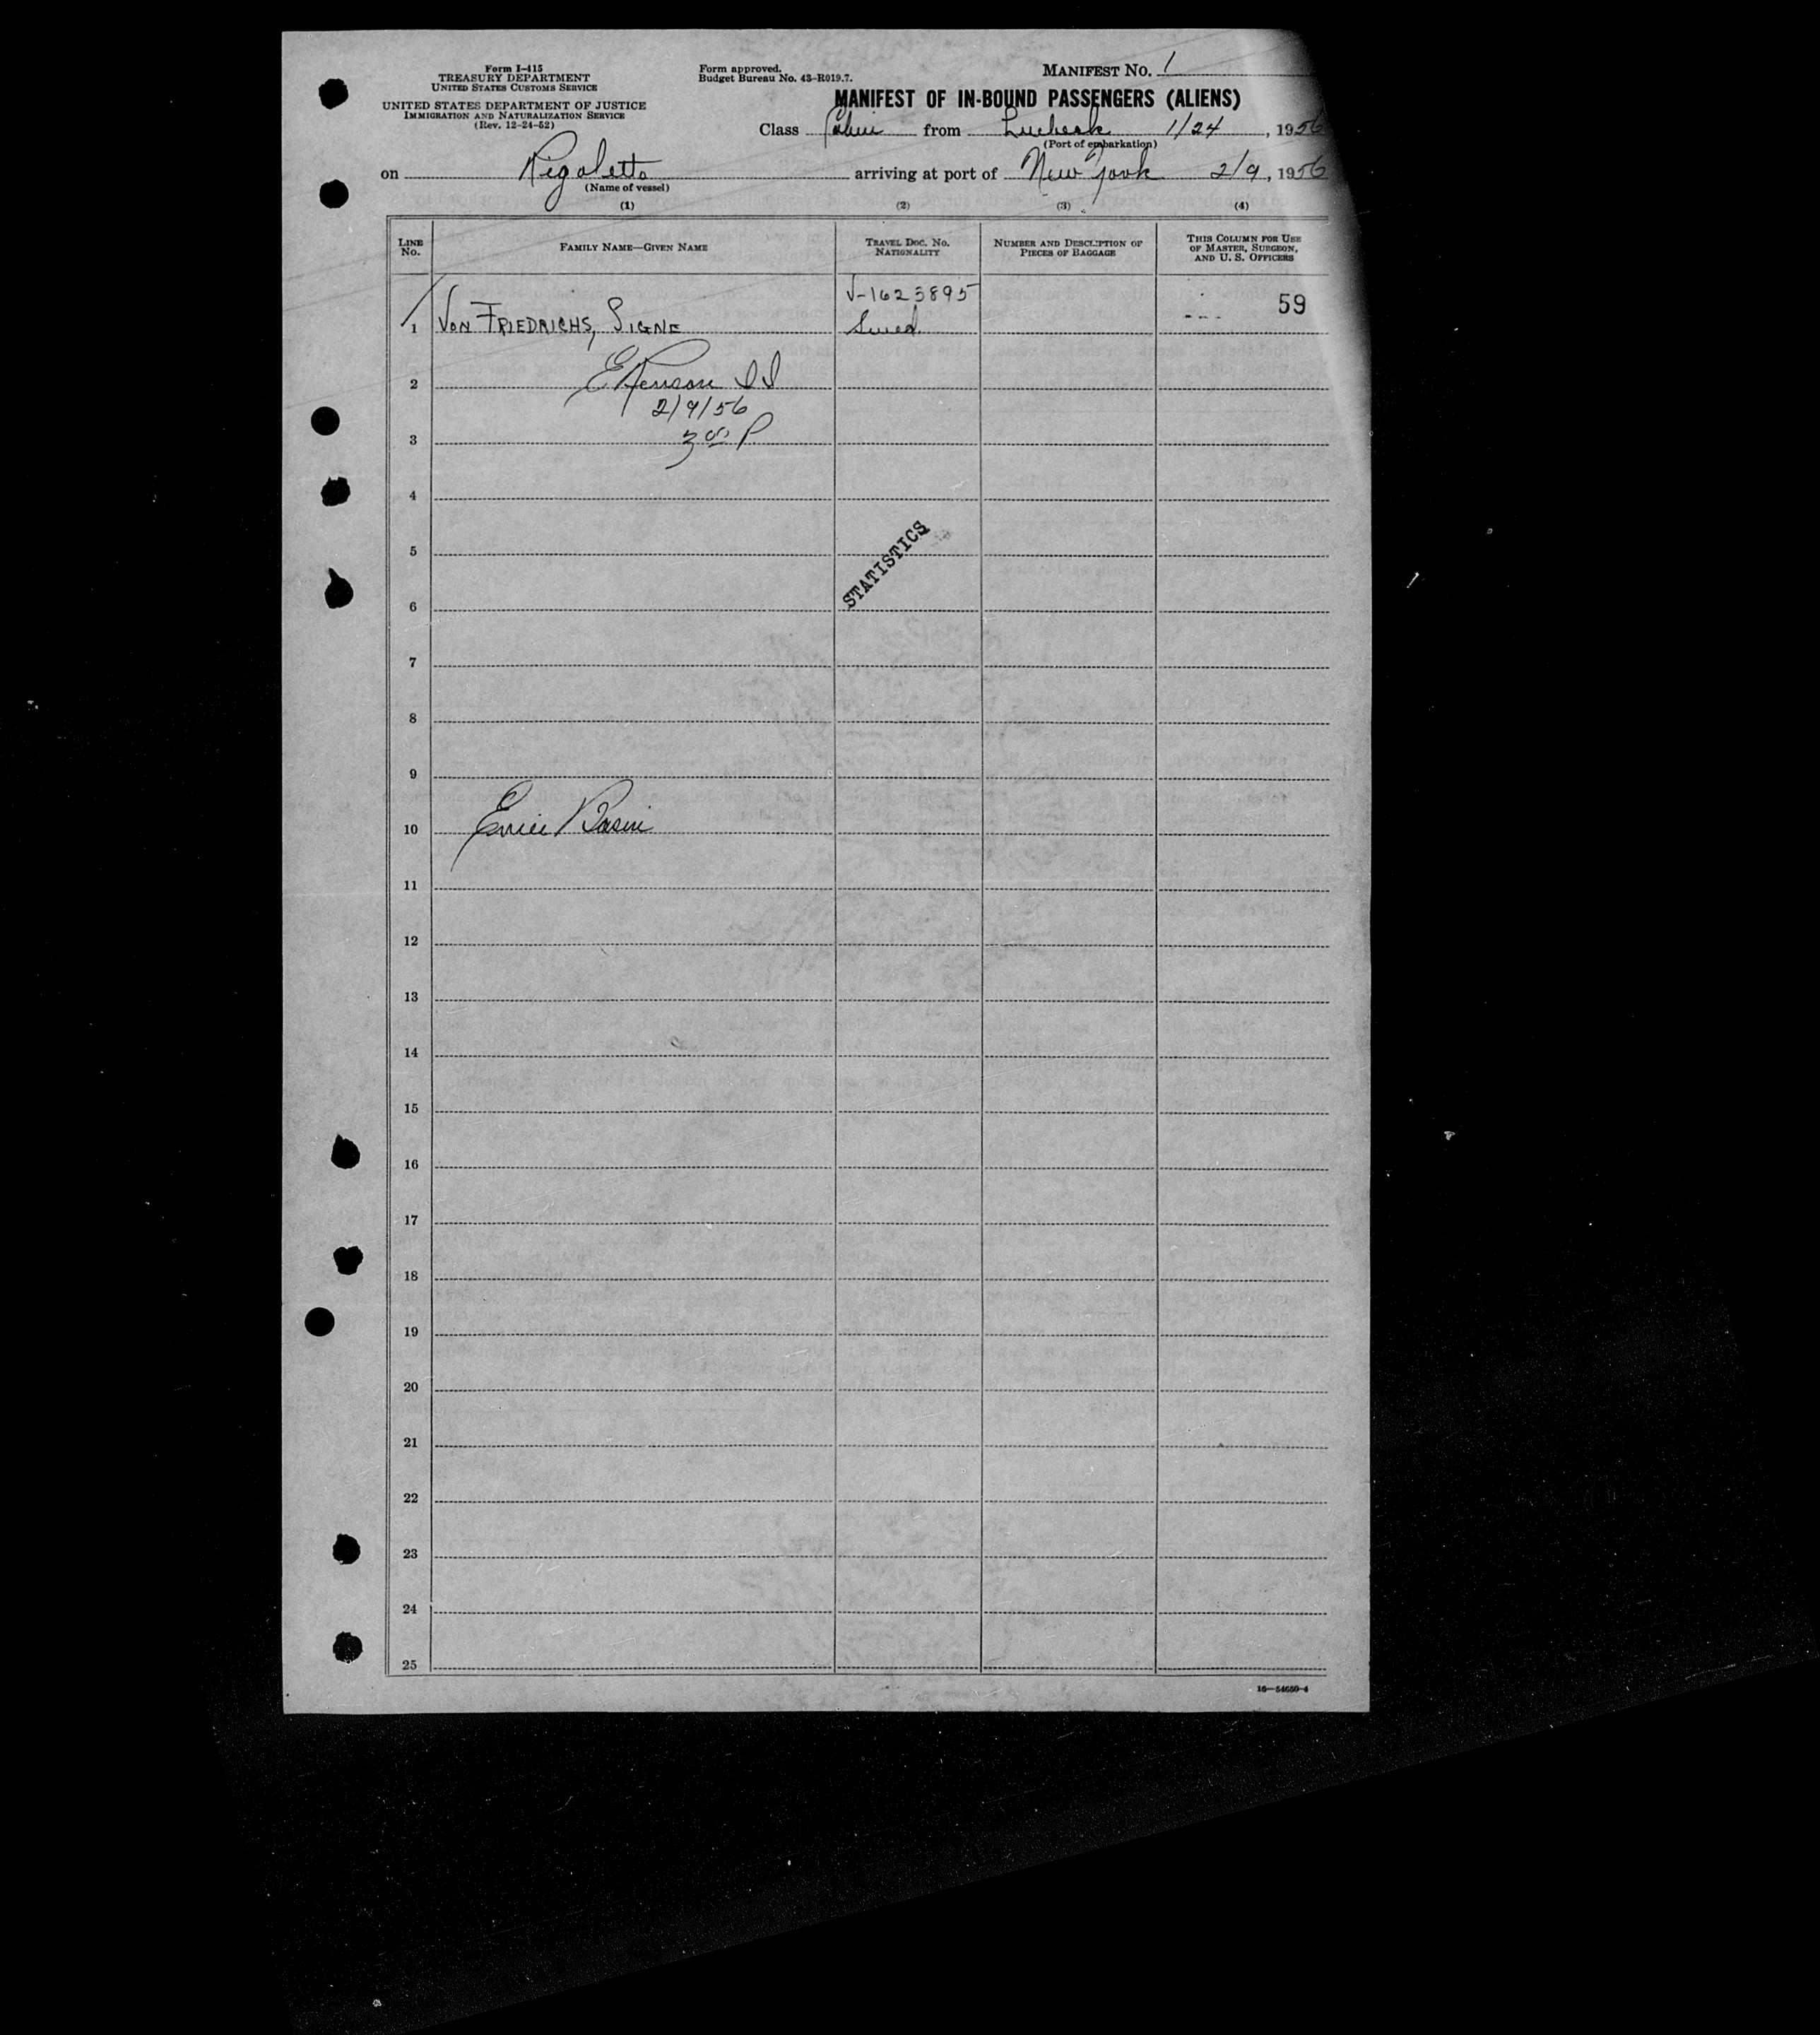 Form I-415
TREASURY DEPARTMENT
UNITED STATES CUSTOMS SERVICE
UNITED STATES DEPARTMENT OF JUSTICE
IMMIGRATION AND NATURALIZATION SERVICE
(Rev. 12-24-52)
Form approved.
Budget Bureau No. 43-R019.7.
MANIFEST No. 1
MANIFEST OF IN-BOUND PASSENGERS (ALIENS)
Class Cabin from Luebeck 1/24, 1956
(Port of embarkation)
on Rigoletto arriving at port of New York 2/9, 1956
(Name of vessel)
(1) (2) (3) (4)
LINE No. FAMILY NAME—GIVEN NAME TRAVEL DOC. No. NATIONALITY NUMBER AND DESCRIPTION OF PIECES OF BAGGAGE THIS COLUMN FOR USE OF MASTER, SURGEON, AND U. S. OFFICERS
V-1623895 59
1 VON FRIEDRICHS, SIGNE Swed.
2
2/9/56
3 P
4
STATISTICS
5
6
7
8
9
10
11
12
13
14
15
16
17
18
19
20
21
22
23
24
25
16—54650-4